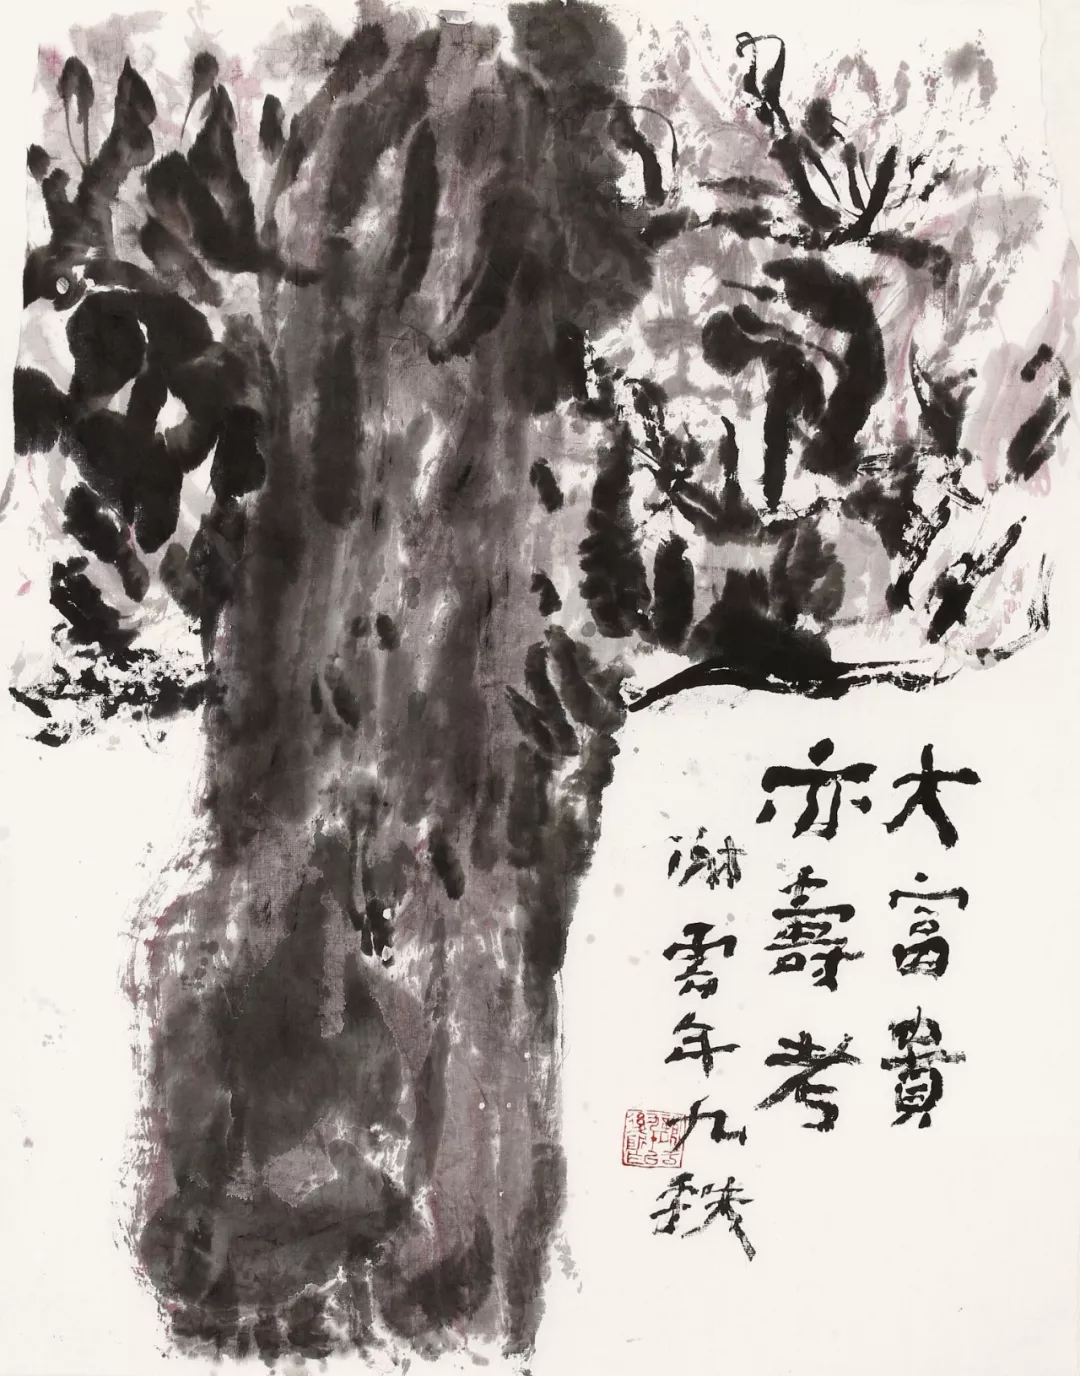 大富貴
亦壽考
謝雲年九秩